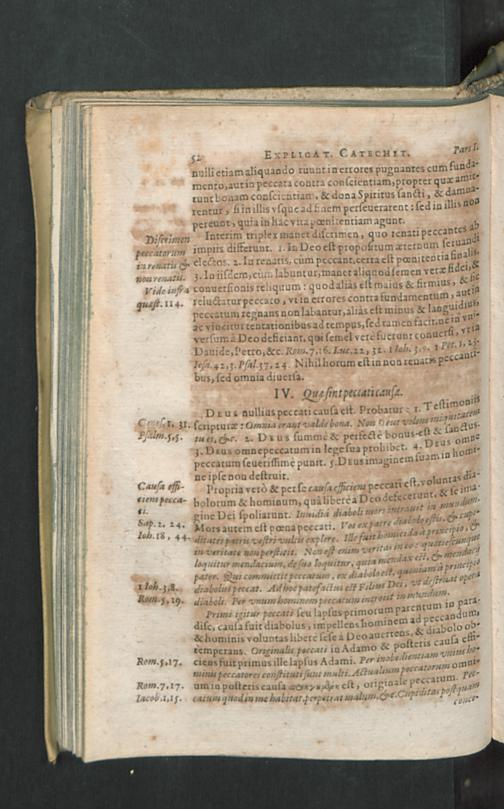 52 EXPLICAT. CATECHET. Pars I.
nulli etiam aliquando ruunt in errores pugnantes cum funda-
mento, aut in peccata contra conscientiam, propter quæ amit-
tunt bonam conscientiam, & dona Spiritus sancti, & damna-
rentur, si in illis vsque ad finem perseuerarent: sed in illis non
pereunt, quia in hac vita pœnitentiam agunt.
Interim triplex manet discrimen, quo renati peccantes ab
impiis differunt. 1. In Deo est propositum æternum seruandi
electos. 2. In renatis, cum peccant, certa est pœnitentia finalis.
3. In iisdem, cùm labuntur, manet aliquod semen veræ fidei, &
conuersionis reliquum: quod aliàs est maius & firmius, & sic
reluctatur peccato, vt in errores contra fundamentum, aut in
peccatum regnans non labantur, aliàs est minus & languidius,
ac vincitur tentationibus ad tempus, sed tamen facit, ne in vni-
versum à Deo deficiant, qui semel verè fuerunt conuersi, vt in
Dauide, Petro, &c. Rom. 7,16. Luc. 22, 32. 1 Ioh. 3.9. 1 Pet. 1, 23.
Iesa. 42,3. Psal. 37, 24. Nihil horum est in non renatis peccanti-
bus, sed omnia diuersa.
Discrimen
peccatorum
in renatis &
non renatis.
Vide infra
quæst. 114.
IV. Quæ sint peccati causæ.
DEUS nullius peccati causa est. Probatur: 1. Testimoniis
scripturæ: Omnia erant valde bona. Non Deus volens iniquitatem
tu es, &c. 2. DEUS summè & perfectè bonus est & sanctus.
3. DEUS omne peccatum in lege sua prohibet. 4. DEUS omne
peccatum seuerissimè punit. 5. DEUS imaginem suam in homi-
ne ipse non destruit.
Genes. 1. 31.
Psalm. 5,5.
Propria verò & per se causa efficiens peccati est, voluntas dia-
bolorum & hominum, qua liberè à Deo defecerunt, & se ima-
gine Dei spoliarunt. Inuidia diaboli mors intrauit in mundum.
Mors autem est pœna peccati. Vos ex patre diabolo estis, & cupi-
ditates patris vestri vultis explere. Ille fuit homicida à principio, &
in veritate non perstitit. Non est enim veritas in eo: quotiescunque
loquitur mendacium, de suo loquitur, quia mendax est, & mendacii
pater. Qui committit peccatum, ex diabolo est, quoniam à principio
diabolus peccat. Ad hoc patefactus est Filius Dei, vt destruat opera
diaboli. Per vnum hominem peccatum introiit in mundum.
Causa effi-
ciens pecca-
ti.
Sap. 2. 24.
Ioh. 18, 44
1 Ioh. 3,8.
Rom. 5, 19.
Primi igitur peccati seu lapsus primorum parentum in para-
diso, causa fuit diabolus, impellens hominem ad peccandum,
& hominis voluntas liberè sese à Deo auertens, & diabolo ob-
temperans. Originalis peccati in Adamo & posteris causa effi-
ciens fuit primus ille lapsus Adami. Per inobedientiam vnius ho-
minis peccatores constituti sunt multi. Actualium peccatorum omni-
um in posteris causa est, originale peccatum. Pec-
catum quod in me habitat, perpetrat malum, &c. Cupiditas postquam
conce-
Rom. 5, 17.
Rom. 7. 17.
Iacob. 1, 15.